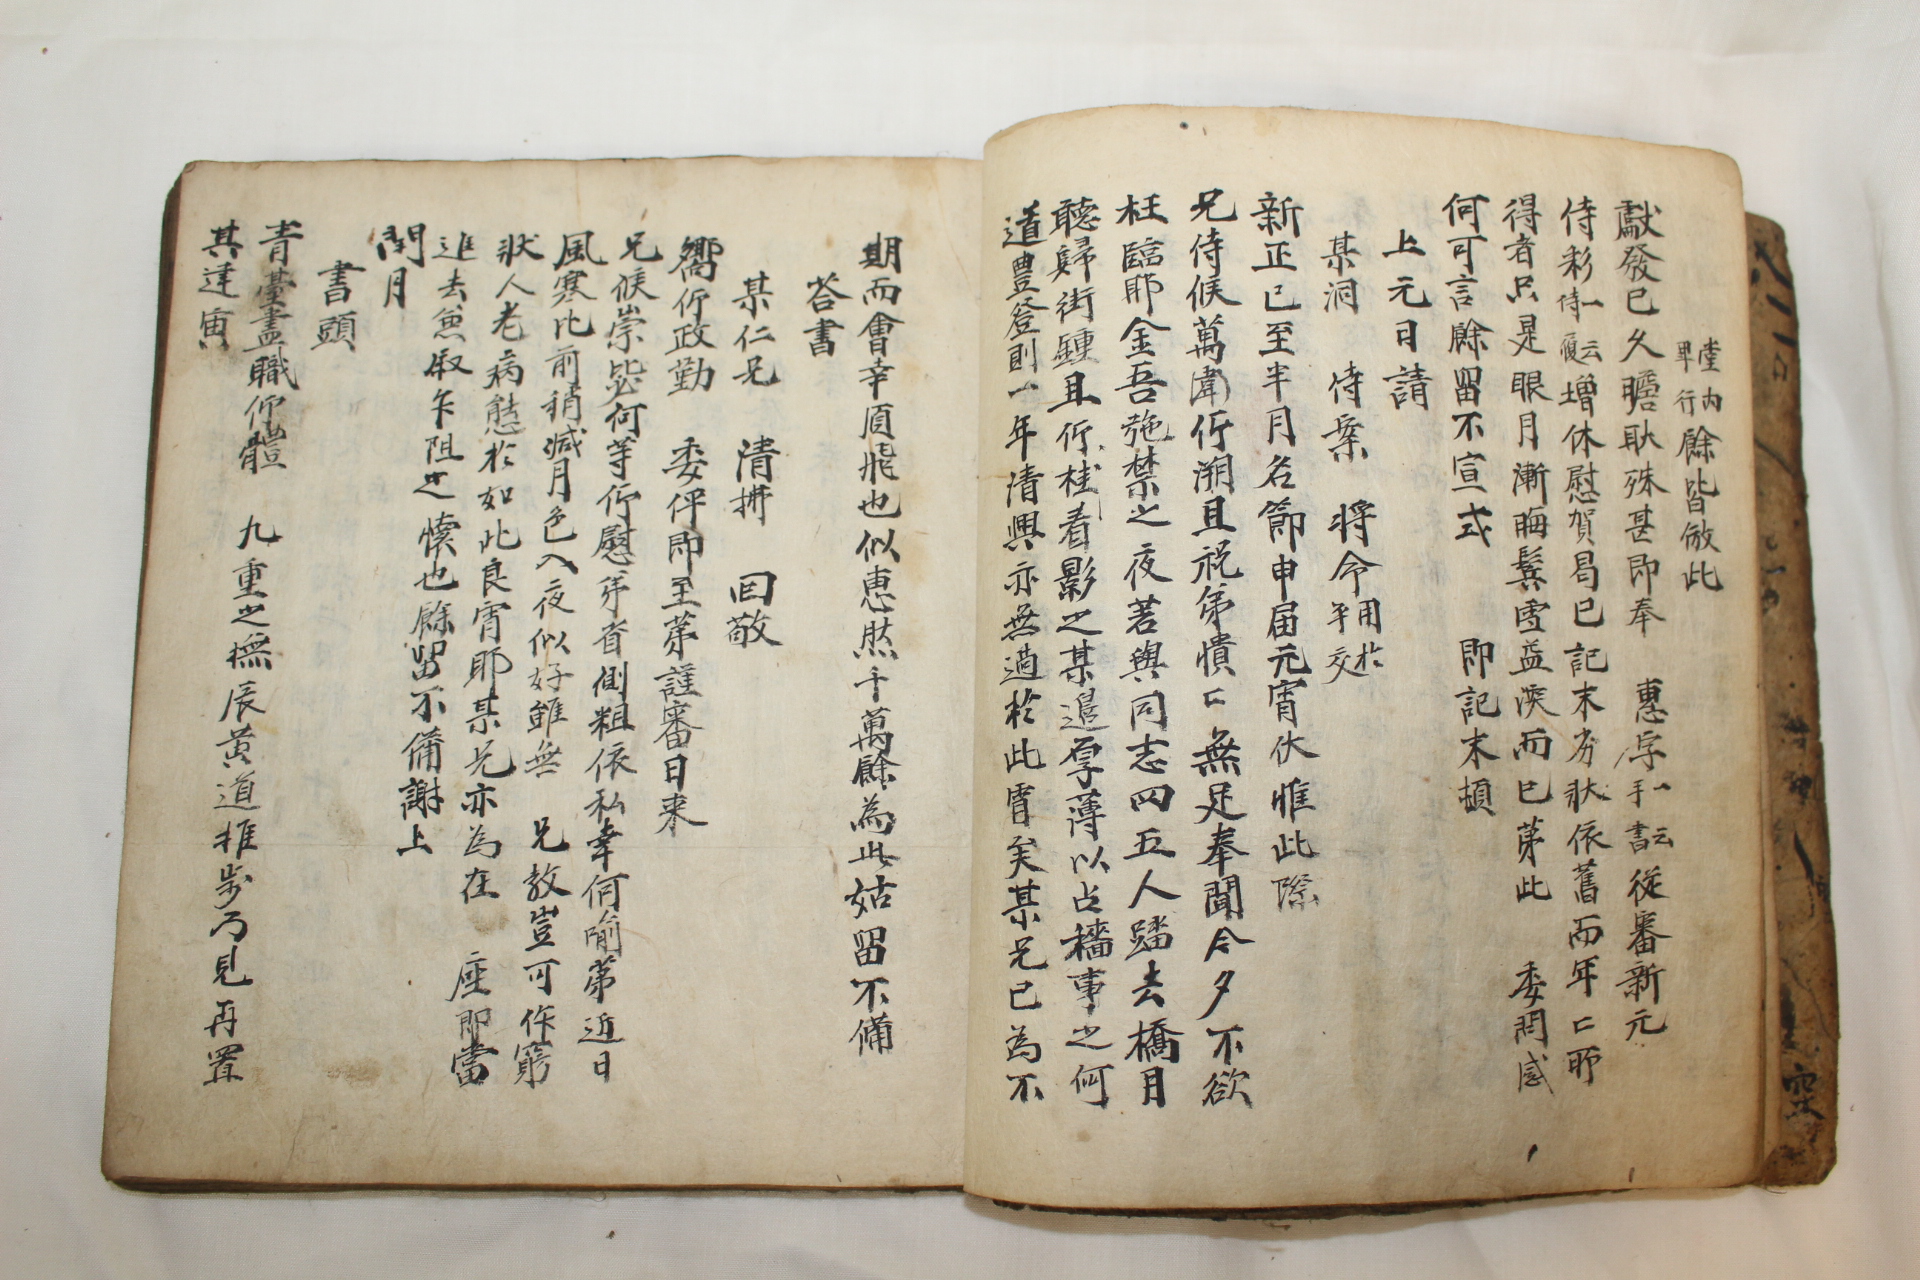 堂内
卑行餘皆倣此
獻發已久瞻耿殊甚即奉　惠字一云手書從審新元
侍彩一云侍履增休慰賀曷已記末劣狀依舊而年亡耶
得者只是眼月漸晦鬂雪益渙而已苐此　委問感
何可言餘留不宣式　即記末頓
上元日請
某洞　侍案　將令用於平交
新正已至半月名節申届元宵伏惟此際
兄侍候萬衛仰溯且祝弟憒亡無足奉聞今夕不欲
枉臨耶金吾弛禁之夜若與同志四五人踏去橋月
聽歸街鍾且仰桂看影之某邊厚薄以占穡事之何
道豊登則一年清興亦無過於此宵矣某兄已為不
期而會幸須飛也似惠然千萬餘為此姑留不備
荅書
某仁兄　清拼　回敬
嚮仰政勤　委伻即至苐謹審日来
兄候崇毖何等仰慰弟省側粗依私幸何喻苐近日
風寒比前稍減月色入夜似好雖無　兄教豈可作窮
狀人老病態於如此良宵耶某兄亦為在　座即當
進去兼敍乍阻之懷也餘留不備謝上
閏月
書頭
青臺盡職仰體　九重之撫辰黄道推步乃見再置
其建寅